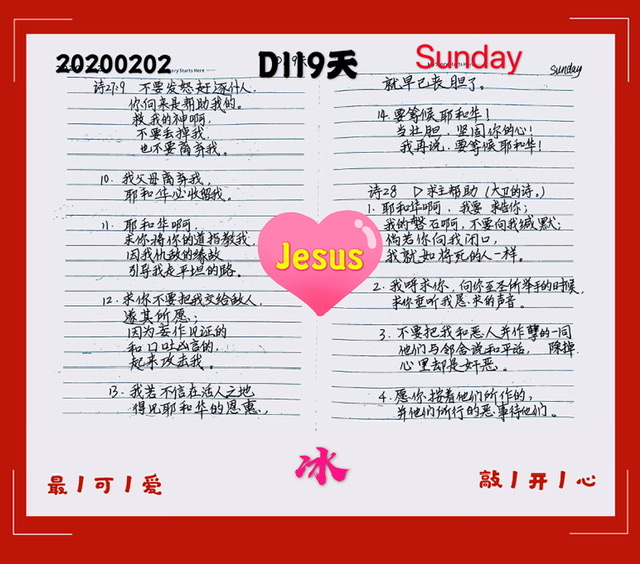 20200202
D119天
Sunday
ory Starts Here
Sunday
诗27:9 不要发怒赶逐仆人,
你向来是帮助我的。
救我的神啊,
不要丢掉我,
也不要离弃我。
10. 我父母离弃我,
耶和华必收留我。
11. 耶和华啊,
求你将你的道指教我,
因我仇敌的缘故
引导我走平坦的路。
12. 求你不要把我交给敌人,
遂其所愿;
因为妄作见证的
和口吐凶言的,
起来攻击我。
13. 我若不信在活人之地
得见耶和华的恩惠,
就早已丧胆了。
14. 要等候耶和华!
当壮胆,坚固你的心!
我再说,要等候耶和华!
诗28 ▷求主帮助(大卫的诗。)
1. 耶和华啊,我要求告你;
我的磐石啊,不要向我缄默;
倘若你向我闭口,
我就如将死的人一样。
2. 我呼求你,向你至圣所举手的时候,
求你垂听我恳求的声音。
3. 不要把我和恶人并作孽的一同
除掉
他们与邻舍说和平话,
心里却是奸恶。
4. 愿你按着他们所作的,
并他们所行的恶事待他们。
Jesus
冰
最丨可丨爱
敲丨开丨心